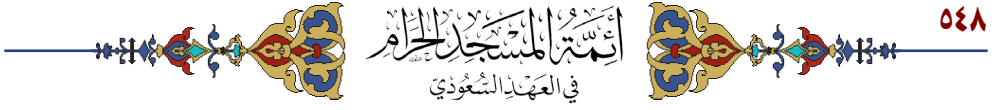 ٥٤٨
أَئِمَّةُ المَسْجِدِ الحَرَامِ
فِي العَهْدِ السُّعُودِيّ